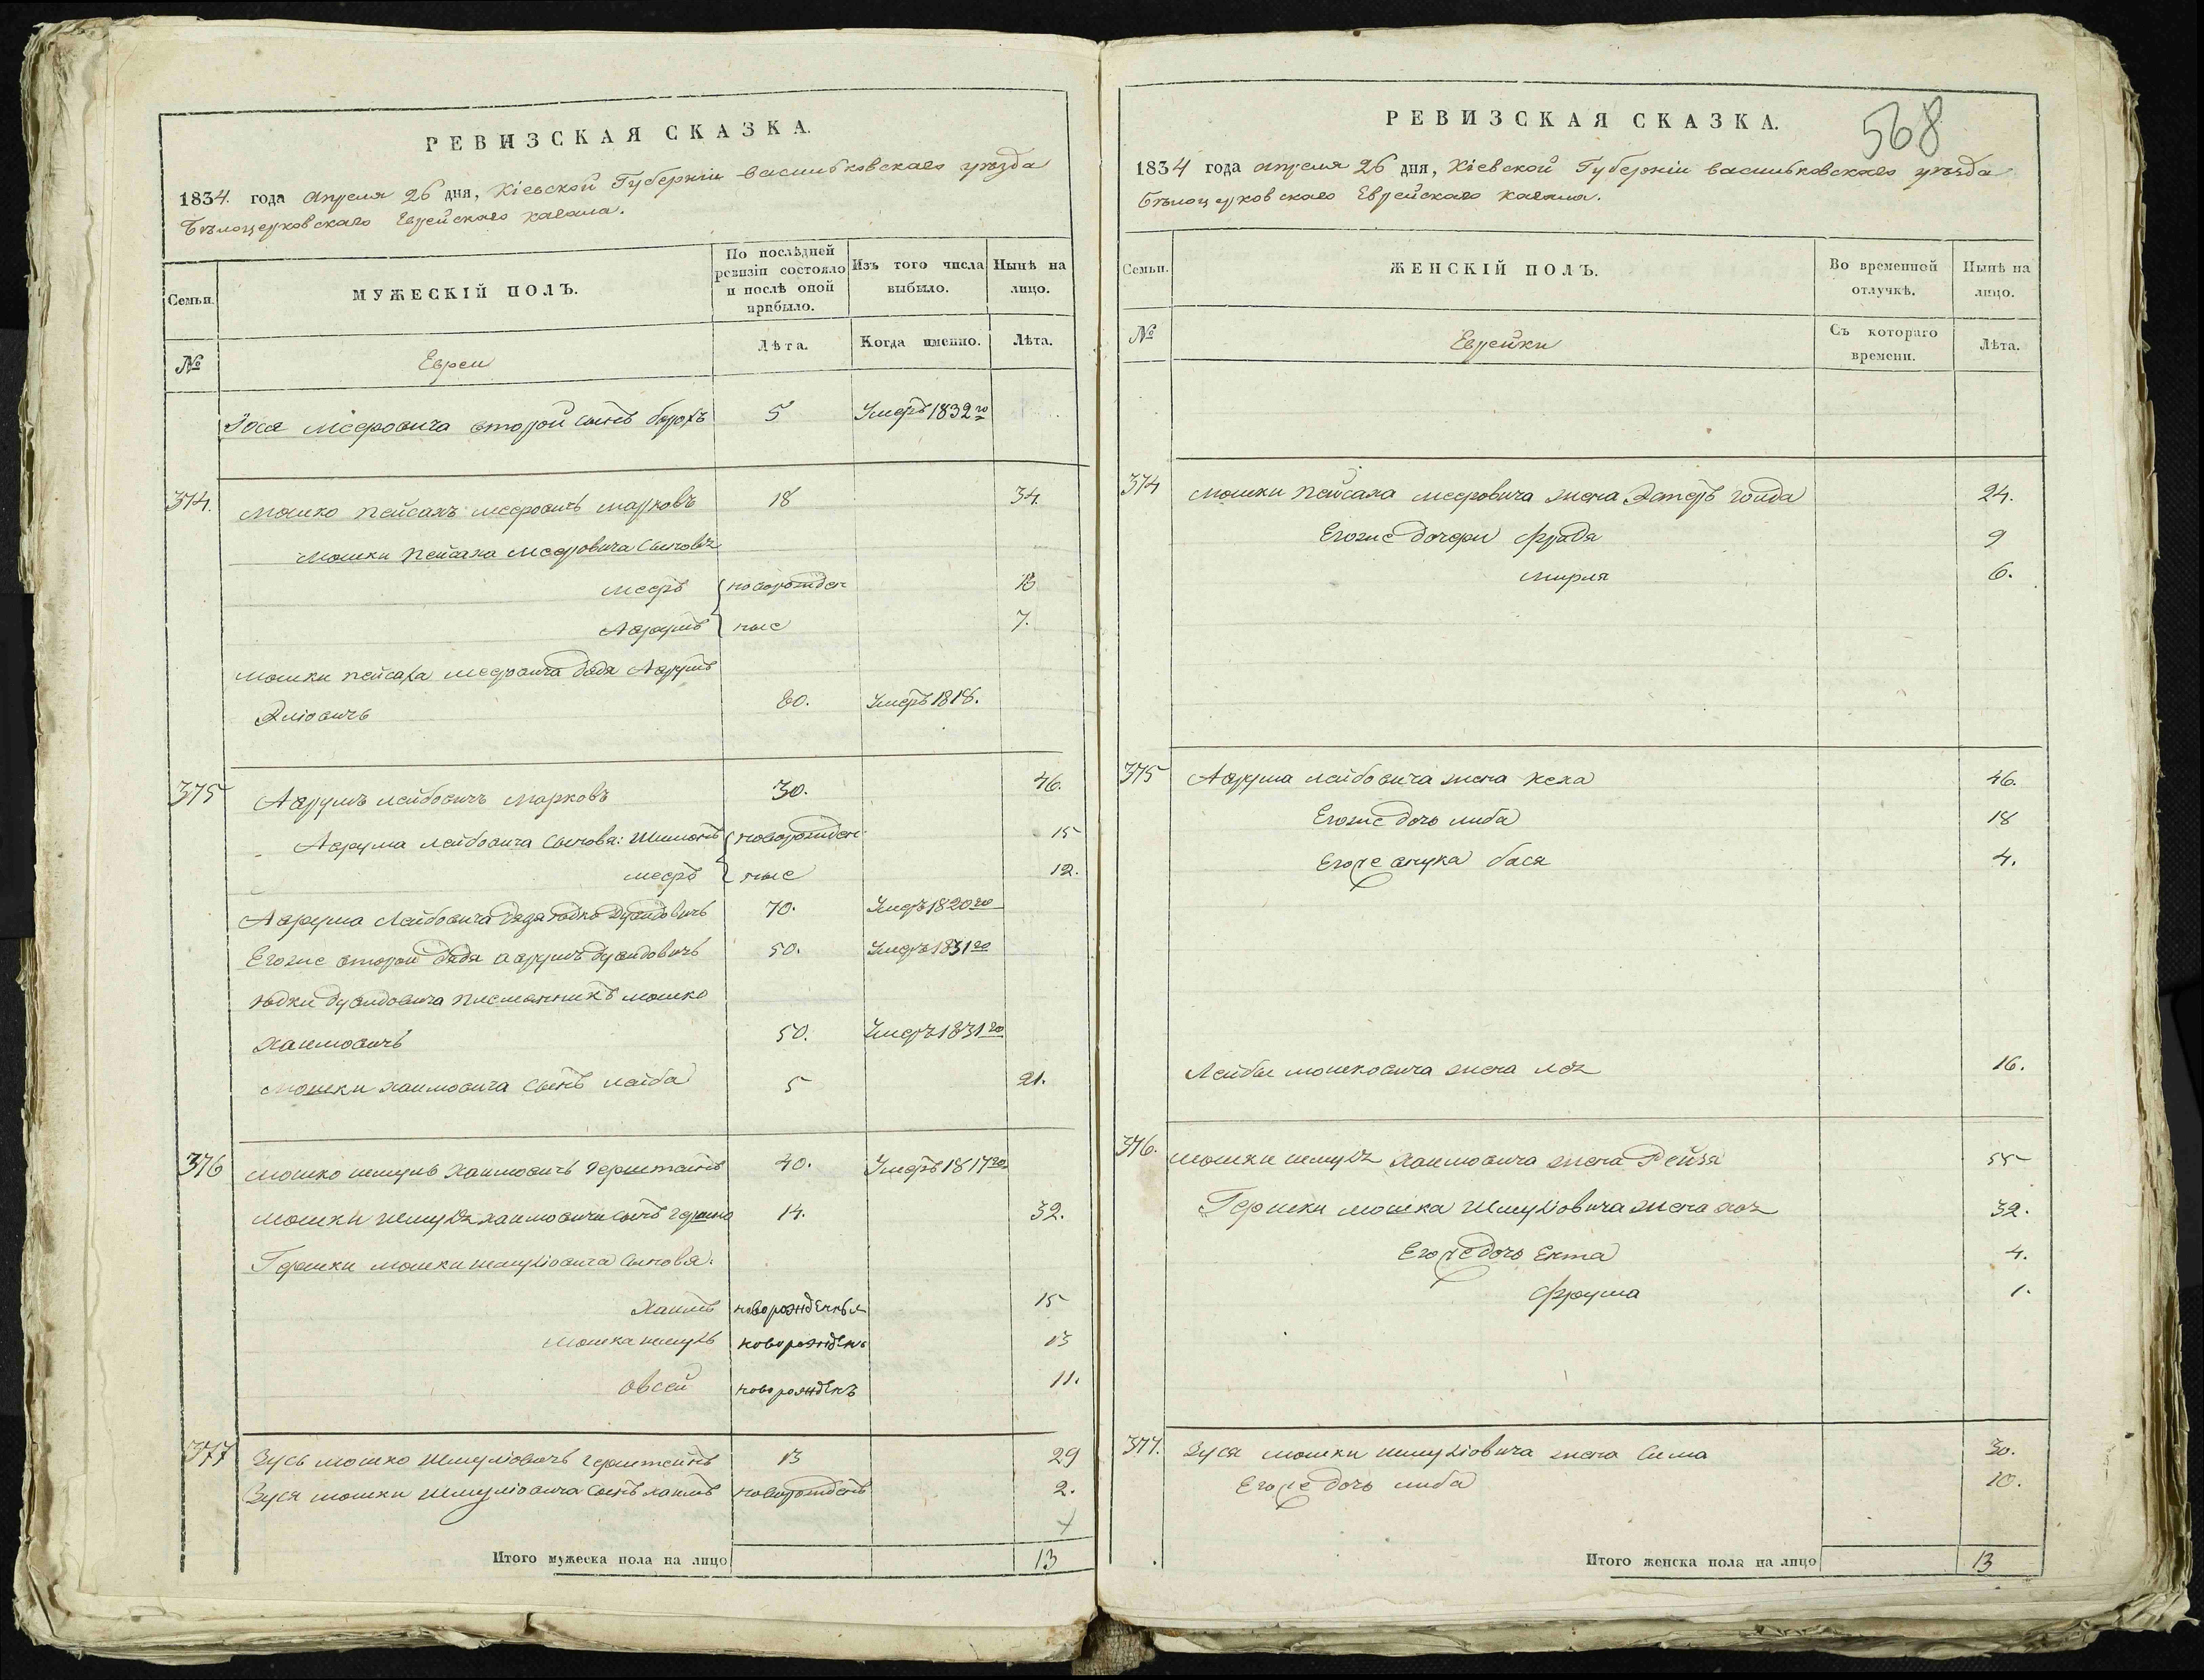 РЕВИЗСКАЯ СКАЗКА.
1834. года Апреля 26 дня, Кіевской Губерніи Васильковскаго уѣзда
Бѣлоцерковскаго Еврейскаго кагала.
Семьи.
МУЖЕСКІЙ ПОЛЪ.
По послѣдней ревизіи состояло и послѣ оной прибыло.
Изъ того числа выбыло.
Нынѣ на лицо.
№
Евреи
Лѣта.
Когда именно.
Лѣта.
Іося Мееровича второй сынъ Борохъ 5 Умеръ 1832го
374. Мошко Пейсахъ Мееровичъ Марковъ 18 34.
Мошки Пейсаха Мееровича сыновя
Мееръ новорожден 13
Аврумъ ные 7.
Мошки Пейсаха Мееровича дядя Аврумъ
Эліовичъ 60. Умеръ 1818.
375 Аврумъ Лейбовичъ Марковъ 30. 46.
Аврума Лейбовича сыновя: Шимонъ новорожден 15
Мееръ ные 12.
Аврума Лейбовича дядя Юдко Дувидовичъ 70. Умеръ 1820го
Егоже второй дядя Аврумъ Дувидовичъ 50. Умеръ 1831го
Юдки Дувидовича племянникъ Мошко
Хаимовичъ 50. Умеръ 1831го
Мошки Хаимовича сынъ Лейба 5 21.
376 Мошко Шмуль Хаимовичъ Герштейнъ 40. Умеръ 1817го
Мошки Шмуля Хаимовича сынъ Гершко 14. 32.
Гершки Мошки Шмуліовича сыновя:
Хаимъ новорожденны 15
Мошка Шмуль новорожден 13
Овсей новорожденъ 11.
377 Зусь Мошко Шмуліовичъ Герштейнъ 13 29
Зуся Мошки Шмуліовича сынъ Хаимъ новорожденъ 2.
Итого мужеска пола на лицо 13
РЕВИЗСКАЯ СКАЗКА.
568
1834 года Апреля 26 дня, Кіевской Губерніи Васильковскаго уѣзда
Бѣлоцерковскаго Еврейскаго кагала.
Семьи.
ЖЕНСКІЙ ПОЛЪ.
Во временной отлучкѣ.
Нынѣ на лицо.
№
Еврейки
Съ котораго времени.
Лѣта.
374 Мошки Пейсаха Мееровича жена Эстеръ Голда 24.
Егоже дочери Фрадя 9
Мирля 6.
375 Аврума Лейбовича жена Хеха 46.
Егоже дочь Либа 18
Егоже внука Бася 4.
Лейбы Мошковича жена Лея 16.
376. Мошки Шмуля Хаимовича жена Рейзя 55
Гершки Мошка Шмуліовича жена Хая 32.
Егоже дочь Ента 4.
Фрума 1.
377. Зуся Мошки Шмуліовича жена Сима 30.
Егоже дочь Либа 10.
Итого женска пола на лицо 13